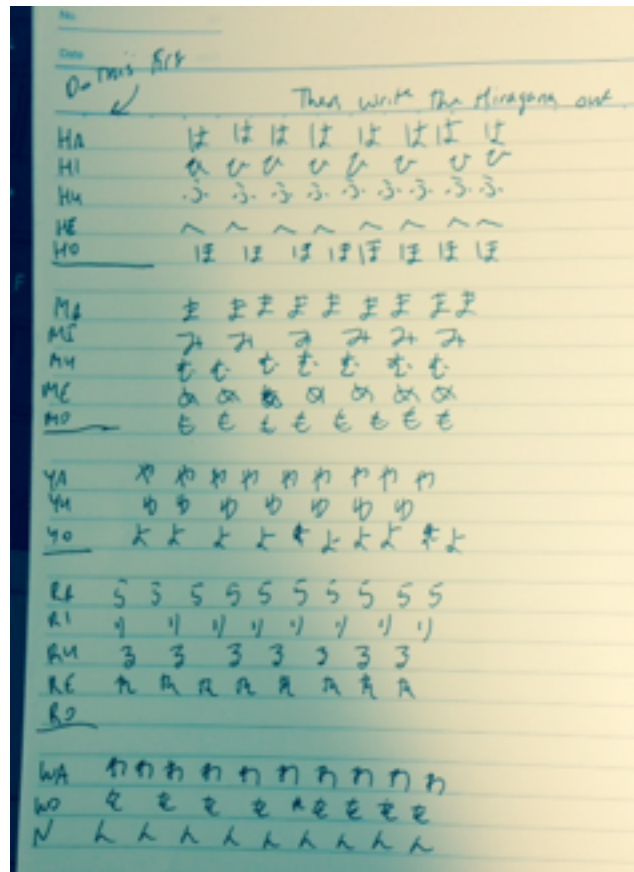 No.
Date
Do This first
Then write the Hiragana out
HA は は は は は は は は
HI ひ ひ ひ ひ ひ ひ ひ ひ
HU ふ ふ ふ ふ ふ ふ ふ ふ ふ
HE へ へ へ へ へ へ へ へ
HO ほ ほ ほ ほ ほ ほ ほ ほ
MA ま ま ま ま ま ま ま ま ま
MI み み み み み み
MU む む む む む む む
ME め め め め め め め
MO も も も も も も も も
YA や や や や や や や や や
YU ゆ ゆ ゆ ゆ ゆ ゆ ゆ
YO よ よ よ よ よ よ よ よ
RA ら ら ら ら ら ら ら ら ら ら
RI り り り り り り り り
RU る る る る る る る
RE れ れ れ れ れ れ れ れ
RO
WA わ わ わ わ わ わ わ わ わ
WO を を を を を を を を
N ん ん ん ん ん ん ん ん ん